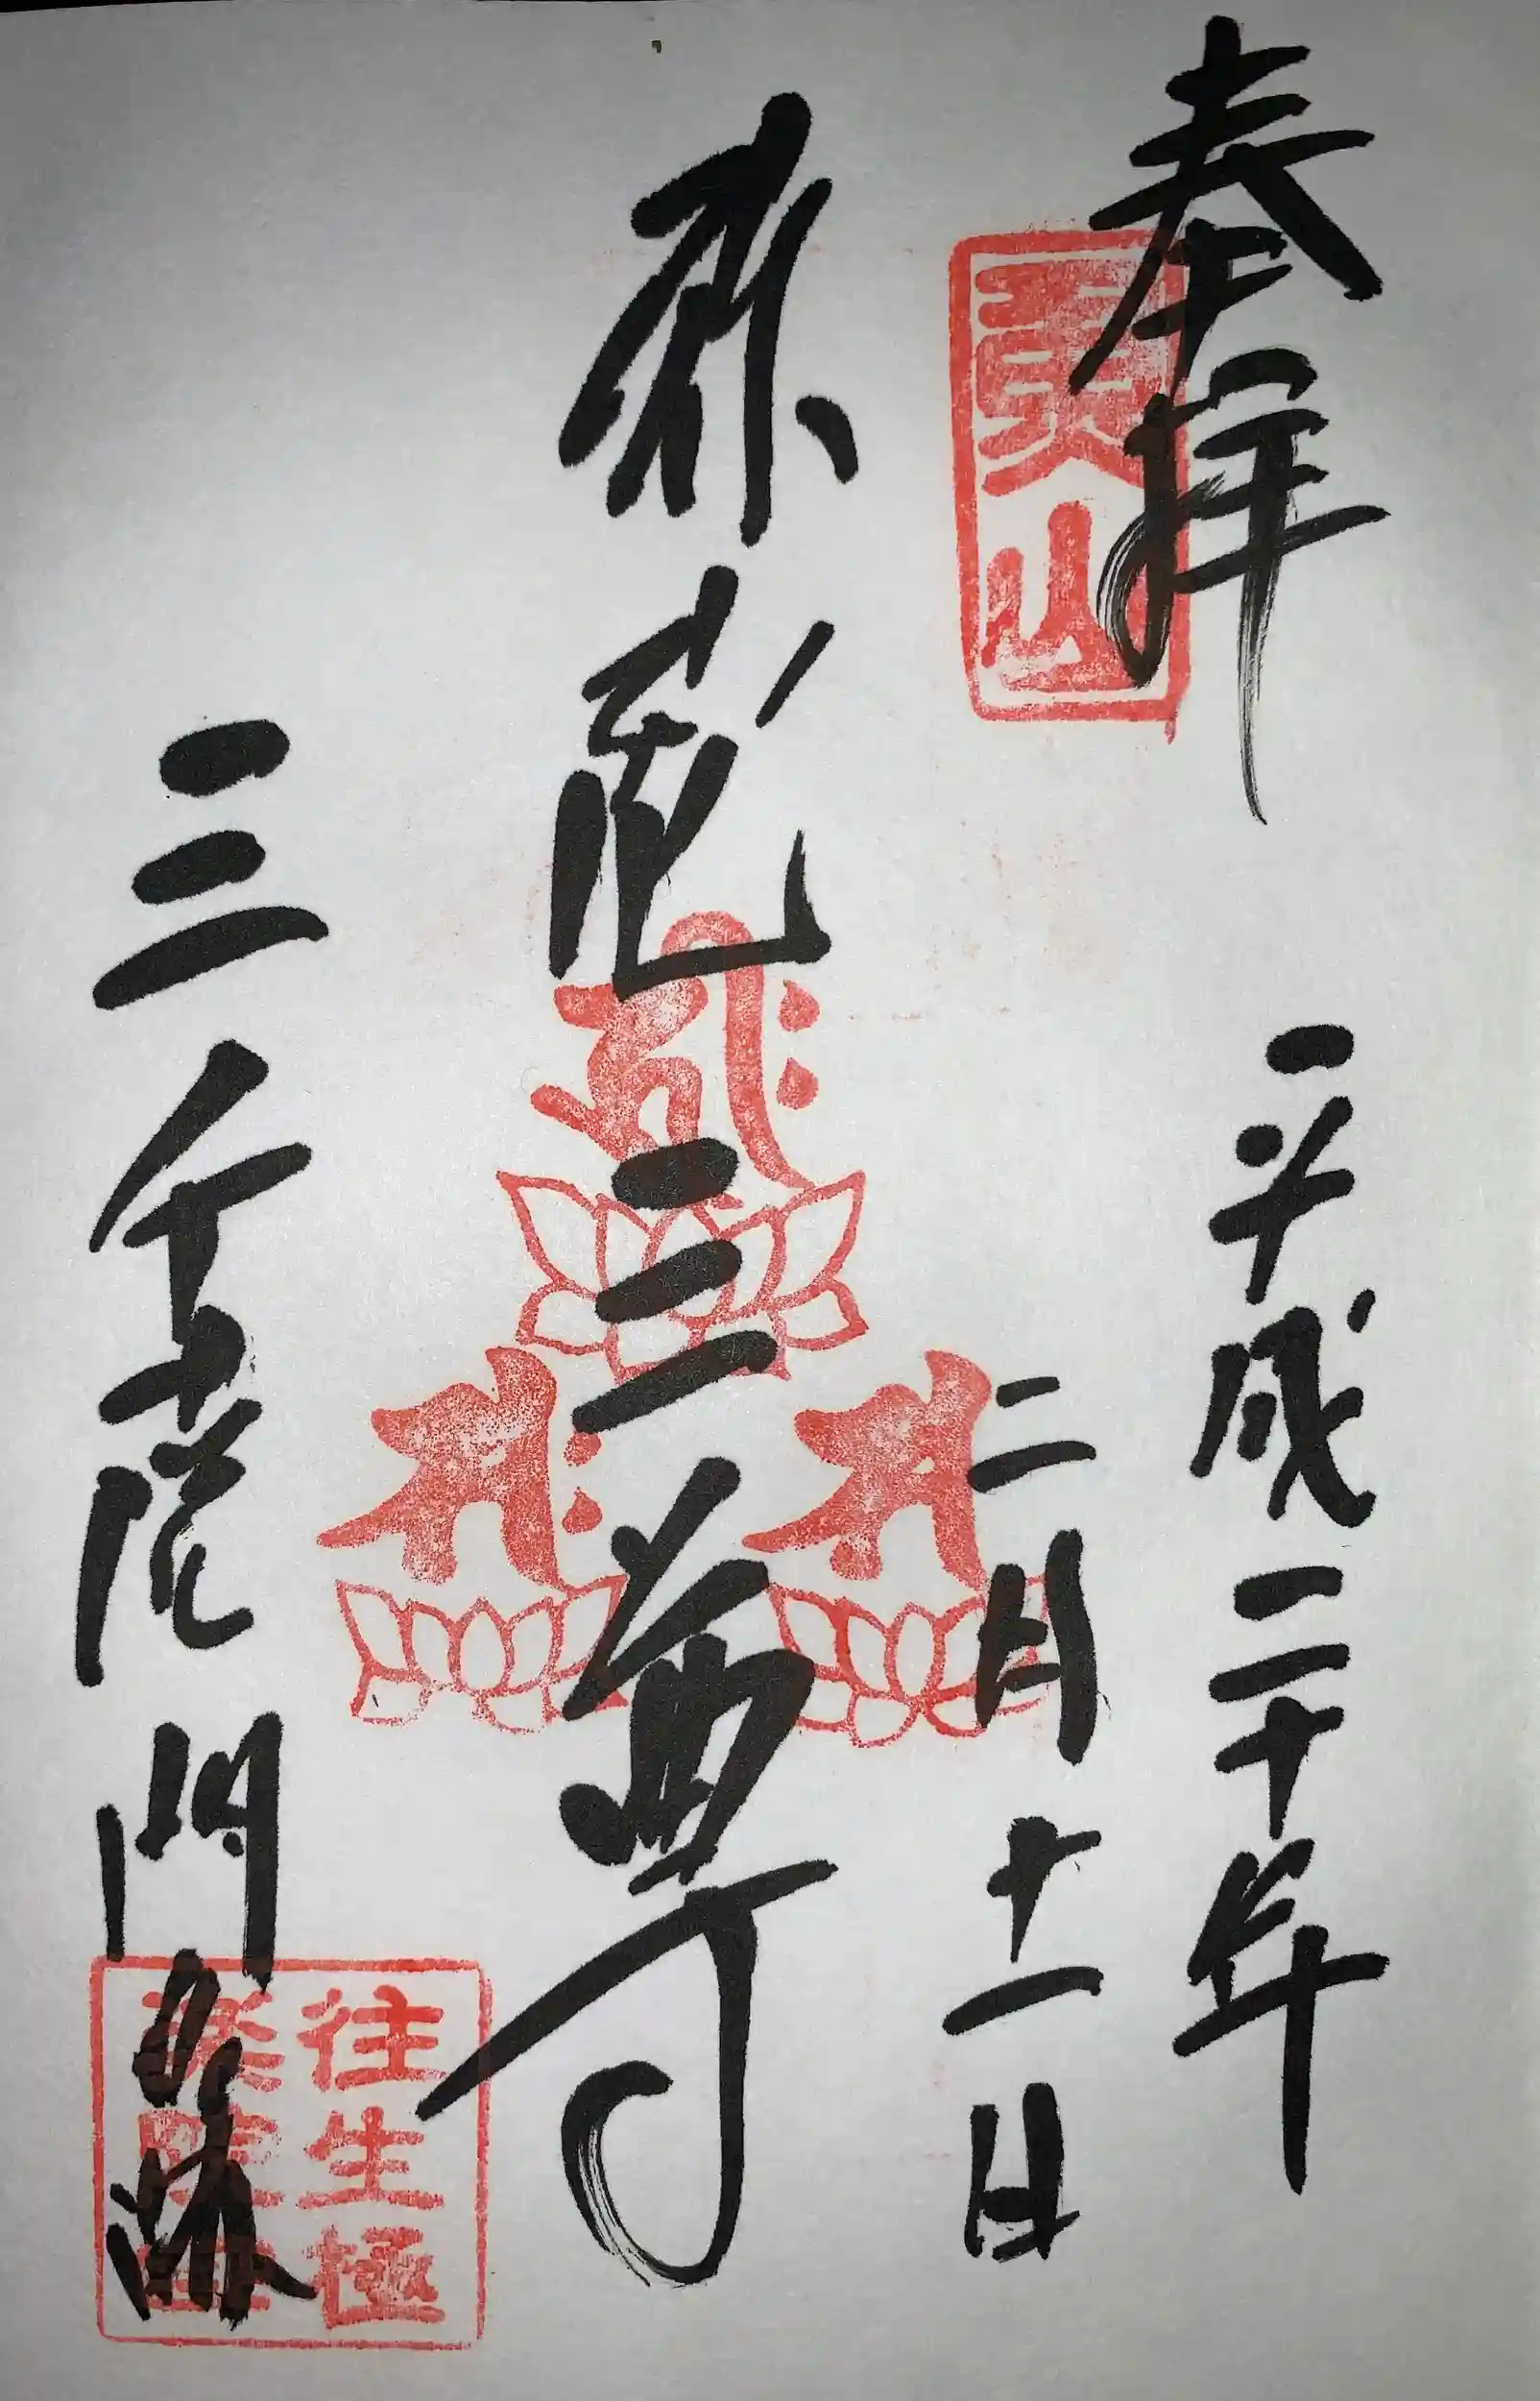 奉拝
平成二十年
二月十一日
弥陀三尊
三千院門跡
往生極